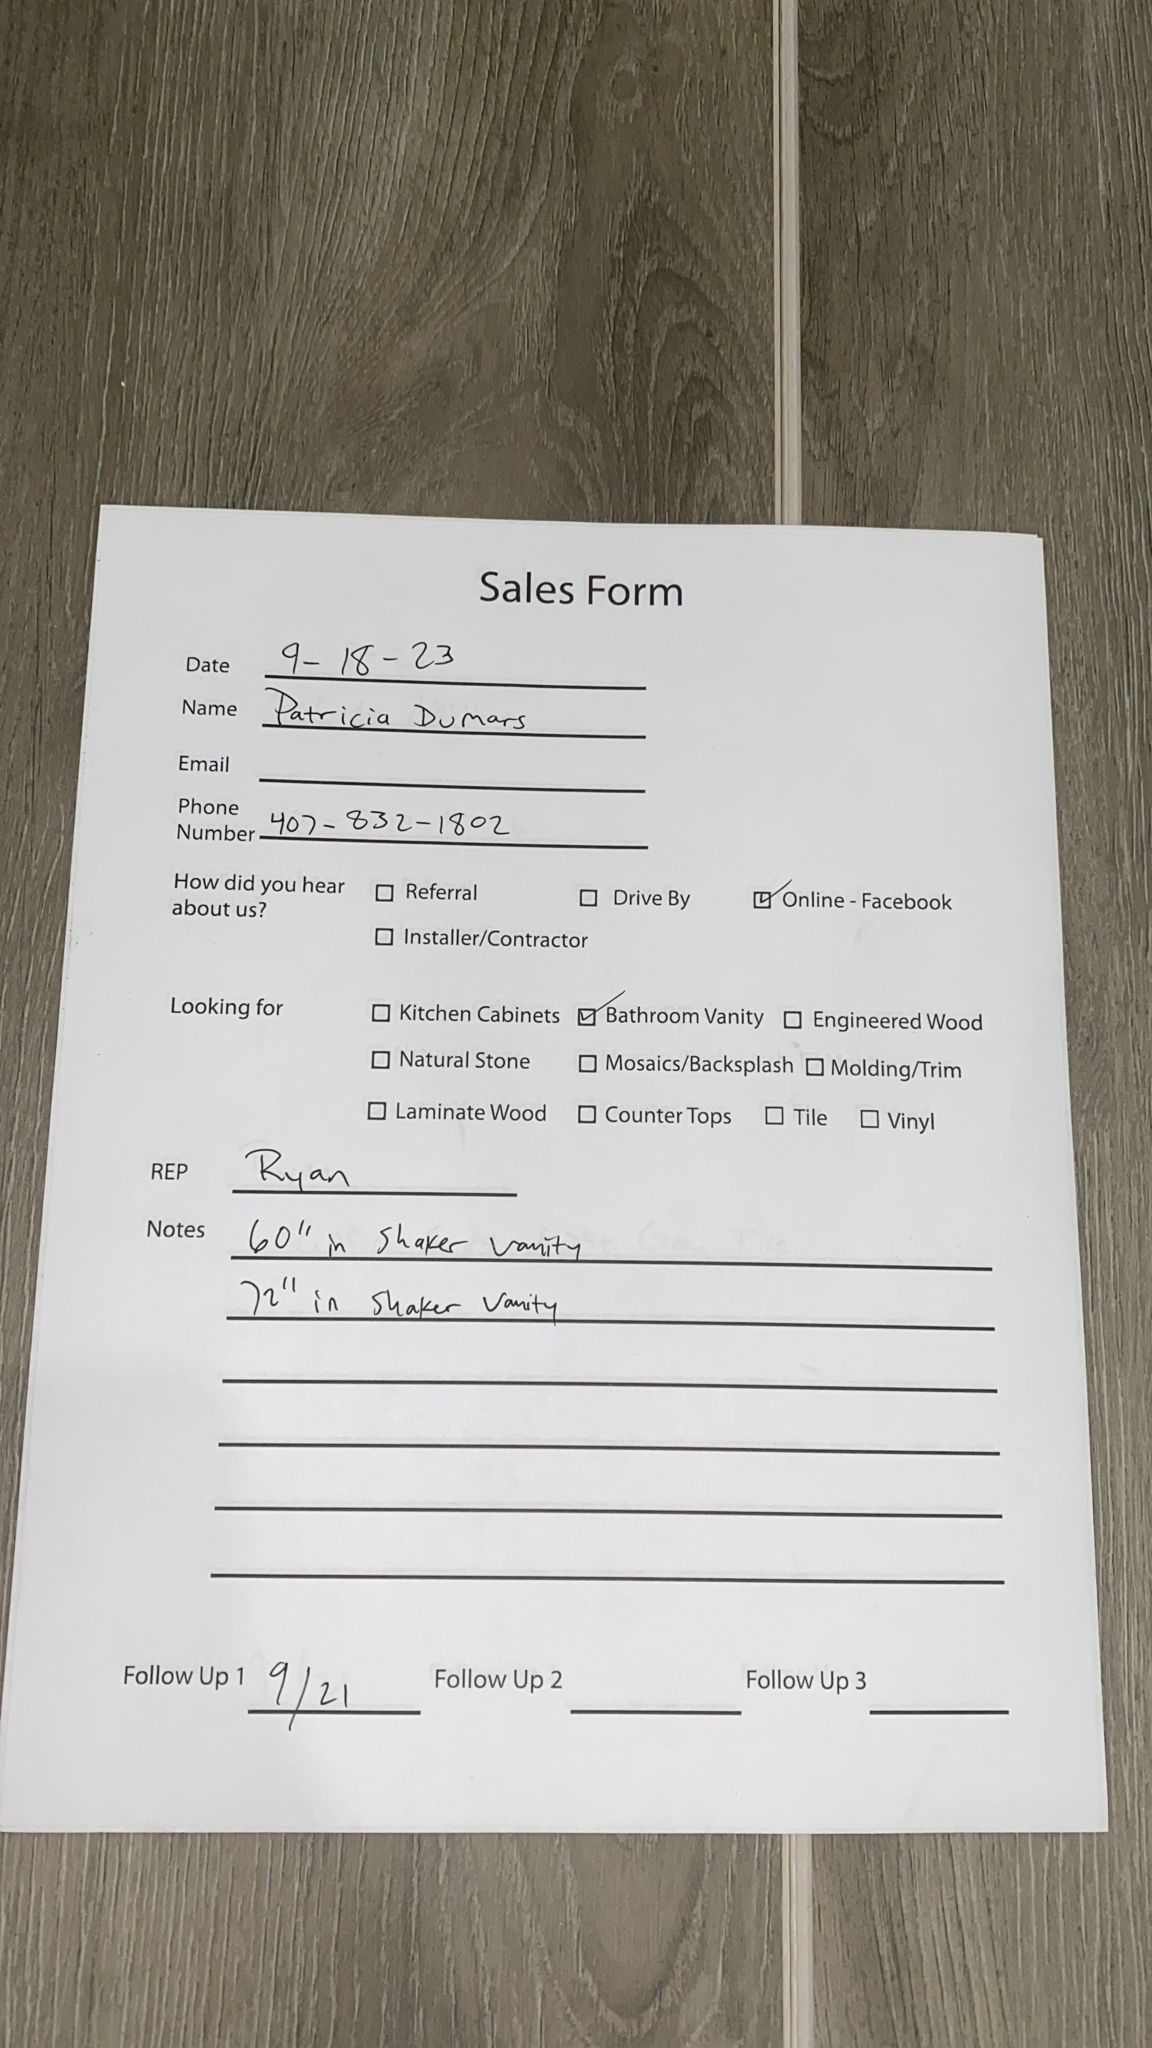 Sales Form
Date 9-18-23
Name Patricia Dumars
Email
Phone
Number 407-832-1802
How did you hear about us? ☐ Referral ☐ Drive By ☑ Online - Facebook
☐ Installer/Contractor
Looking for ☐ Kitchen Cabinets ☑ Bathroom Vanity ☐ Engineered Wood
☐ Natural Stone ☐ Mosaics/Backsplash ☐ Molding/Trim
☐ Laminate Wood ☐ Counter Tops ☐ Tile ☐ Vinyl
REP Ryan
Notes 60" in shaker vanity
72" in shaker vanity
Follow Up 1 9/21 Follow Up 2 Follow Up 3